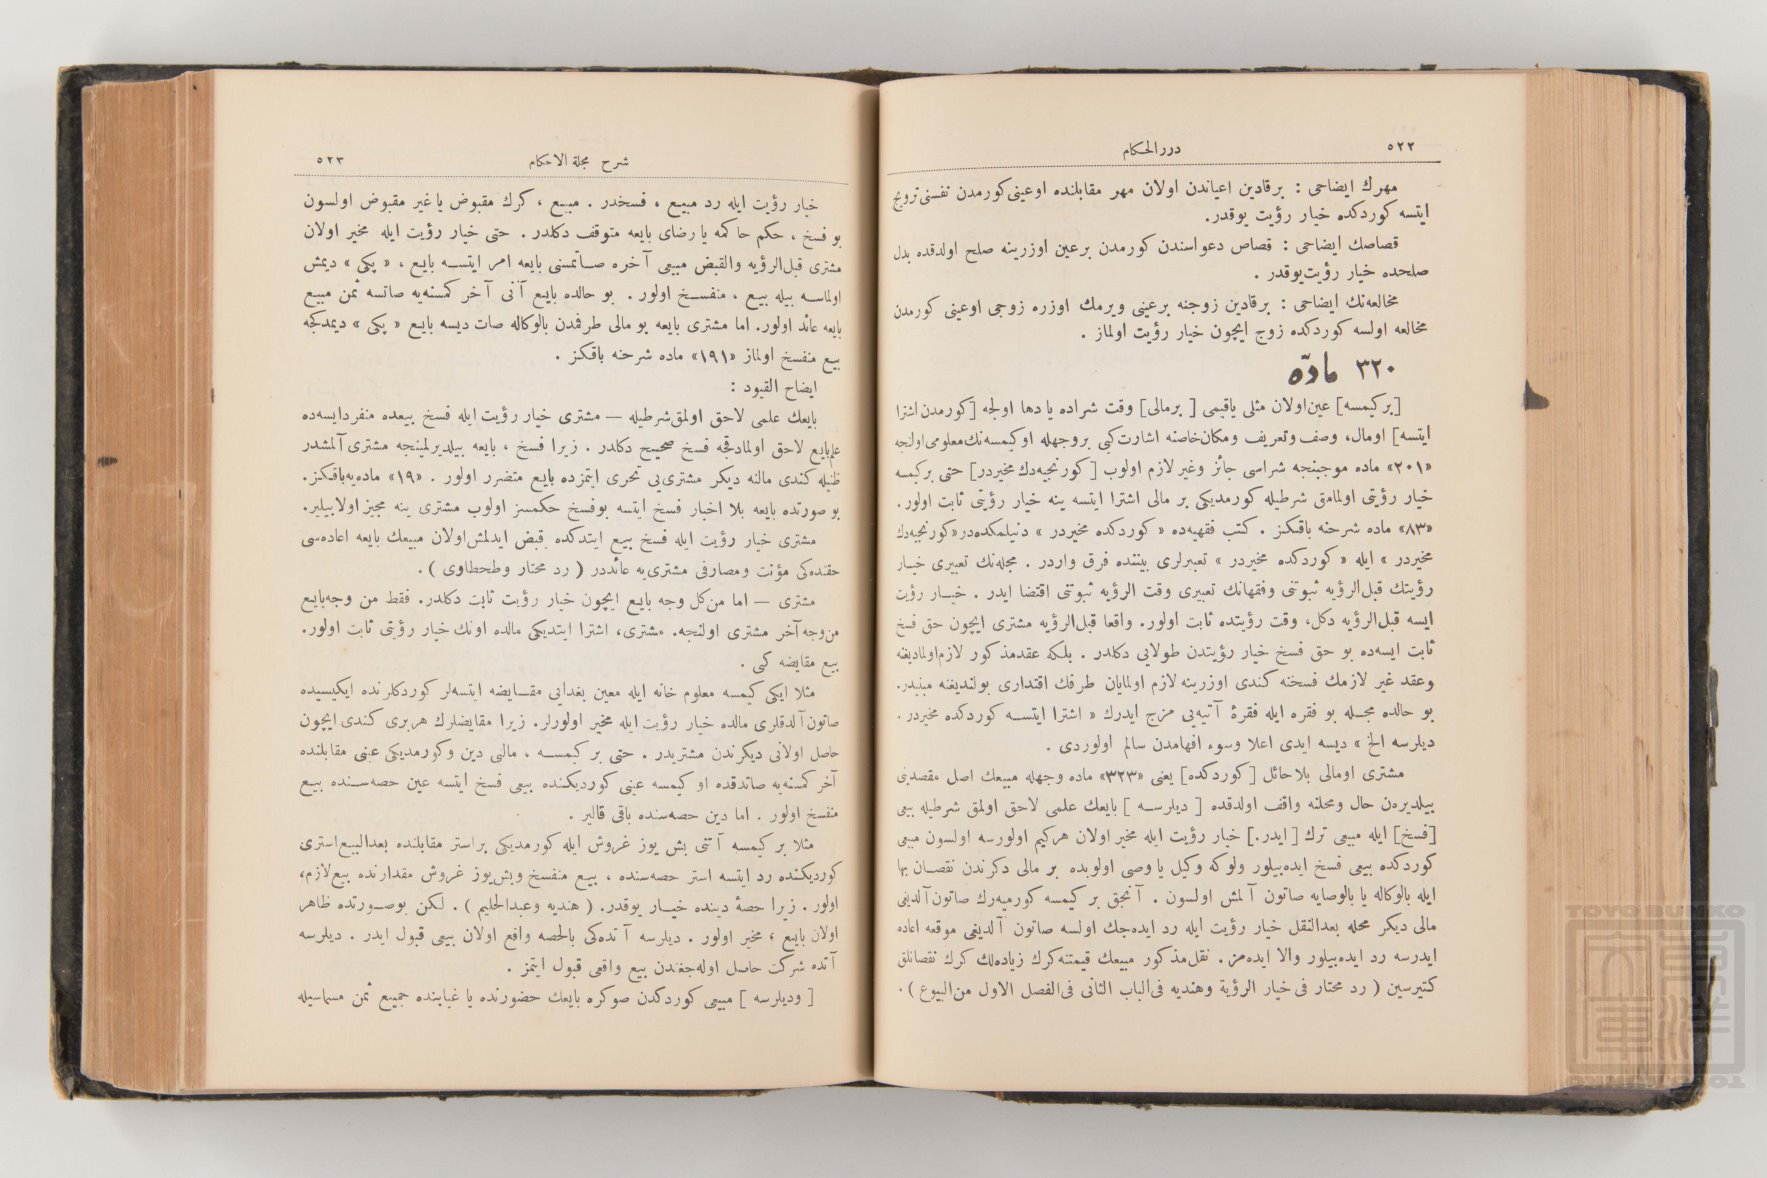 ٥٢٢
دررالحكام
مهرك ايضاحى : برقادين اعياندن اولان مهر مقابلنده اوعينى كورمدن نفسنى تزويج
ايتسه كوردكده خيار رؤيت يوقدر.
قصاصك ايضاحى : قصاص دعواسندن كورمدن برعين اوزرينه صلح اولدقده بدل
صلحده خيار رؤيت يوقدر .
مخالعه‌نك ايضاحى : برقادين زوجنه برعينى ويرمك اوزره زوجى اوعينى كورمدن
مخالعه اولسه كوردكده زوج ايچون خيار رؤيت اولماز .
٣٢٠ مادّه
[بركيمسه] عين اولان مثلى ياقيمى [ برمالى] وقت شراده يا دها اولجه [كورمدن اشترا
ايتسه] اومال، وصف وتعريف ومكان خاصنه اشارت كبى بروجهله اوكيمسه‌نك معلومى اولنجه
«٢٠١» ماده موجبنجه شراسى جائز وغير لازم اولوب [كورنجيه‌دك مخيردر] حتى بركيمسه
خيار رؤيتى اولمامق شرطيله كورمديكى بر مالى اشترا ايتسه ينه خيار رؤيتى ثابت اولور.
«٨٣» ماده شرحنه باقكز . كتب فقهيه‌ده « كوردكده مخيردر » دنيلمكده‌در «كورنجيه‌دك
مخيردر » ايله « كوردكده مخيردر » تعبيرلرى بيننده فرق واردر . مجله‌نك تعبيرى خيار
رؤيتك قبل الرؤيه ثبوتنى وفقهانك تعبيرى وقت الرؤيه ثبوتنى اقتضا ايدر . خيار رؤيت
ايسه قبل الرؤيه دكل، وقت رؤيتده ثابت اولور. واقعا قبل الرؤيه مشترى ايچون حق فسخ
ثابت ايسه‌ده بو حق فسخ خيار رؤيتدن طولايى دكلدر . بلكه عقد مذكور لازم اولماديغنه
وعقد غير لازمك فسخنه كندى اوزرينه لازم اولمايان طرفك اقتدارى بولنديغنه مبنيدر.
بو حالده مجله بو فقره ايله فقرۀ آتيه‌يى مزج ايدرك « اشترا ايتسه كوردكده مخيردر .
ديلرسه الخ » ديسه ايدى اعلا وسوء افهامدن سالم اولوردى .
مشترى اومالى بلاحائل [كوردكده] يعنى «٣٢٣» ماده وجهله مبيعك اصل مقصدينى
بيلديره‌ن حال ومحلنه واقف اولدقده [ ديلرسه ] بايعك علمى لاحق اولمق شرطيله بيعى
[فسخ] ايله مبيعى ترك [ايدر.] خيار رؤيت ايله مخير اولان هركيم اولورسه اولسون مبيعى
كوردكده بيعى فسخ ايده‌بيلور ولوكه وكيل يا وصى اولوبده بر مالى دكرندن نقصان بها
ايله بالوكاله يا بالوصايه صاتون آلمش اولسون . آنجق بر كيمسه كورميه‌رك صاتون آلديغى
مالى ديكر محله بعدالنقل خيار رؤيت ايله رد ايده‌جك اولسه صاتون آلديغى موقعه اعاده
ايدرسه رد ايده‌بيلور والا ايده‌مز. نقل مذكور مبيعك قيمتنه كرك زياده‌لك كرك نقصانلق
كتيرسين ( رد محتار فى خيار الرؤية وهنديه فى الباب الثانى فى الفصل الاول من البيوع ).
شرح مجلة الاحكام
٥٢٣
خيار رؤيت ايله رد مبيع ، فسخدر . مبيع ، كرك مقبوض ياغير مقبوض اولسون
بو فسخ ، حكم حاكمه يا رضاى بايعه متوقف دكلدر . حتى خيار رؤيت ايله مخير اولان
مشترى قبل الرؤيه والقبض مبيعى آخره صاتمسنى بايعه امر ايتسه بايع ، « پكى » ديمش
اولماسه بيله بيع ، منفسخ اولور . بو حالده بايع آنى آخر كمسنه‌يه صاتسه ثمن مبيع
بايعه عائد اولور. اما مشترى بايعه بو مالى طرفمدن بالوكاله صات ديسه بايع « پكى » ديمدكجه
بيع منفسخ اولماز «١٩١» ماده شرحنه باقكز .
ايضاح القيود :
بايعك علمى لاحق اولمق شرطيله — مشترى خيار رؤيت ايله فسخ بيعده منفردايسه‌ده
علم بايع لاحق اولمادقجه فسخ صحيح دكلدر . زيرا فسخ ، بايعه بيلديرلمينجه مشترى آلمشدر
ظنيله كندى مالنه ديكر مشترى‌يى تحرى ايتمزده بايع متضرر اولور . «١٩» ماده‌يه باقكز.
بو صورتده بايعه بلا اخبار فسخ ايتسه بوفسخ حكمسز اولوب مشترى ينه مجيز اولابيلير.
مشترى خيار رؤيت ايله فسخ بيع ايتدكده قبض ايدلمش اولان مبيعك بايعه اعاده‌سى
حقنده‌كى مؤنت ومصارفى مشترى‌يه عائددر ( رد محتار وطحطاوى ) .
مشترى — اما من كل وجه بايع ايچون خيار رؤيت ثابت دكلدر. فقط من وجه بايع
من وجه آخر مشترى اولنجه. مشترى، اشترا ايتديكى مالده اونك خيار رؤيتى ثابت اولور.
بيع مقايضه كبى .
مثلا ايكى كيمسه معلوم خانه ايله معين بغدايى مقايضه ايتسه‌لر كوردكلرنده ايكيسيده
صاتون آلدقلرى مالده خيار رؤيت ايله مخير اولورلر. زيرا مقايضلرك هربرى كندى ايچون
حاصل اولانى ديكرندن مشتريدر . حتى بر كيمسه ، مالنى دين وكورمديكى عينى مقابلنده
آخر كمسنه‌يه صاتدقده او كيمسه عينى كورديكنده بيعى فسخ ايتسه عين حصه‌سنده بيع
منفسخ اولور . اما دين حصه‌سنده باقى قالير .
مثلا بر كيمسه آتنى بش يوز غروش ايله كورمديكى براستر مقابلنده بعدالبيع استرى
كورديكنده رد ايتسه استر حصه‌سنده ، بيع منفسخ وبش يوز غروش مقدارنده بيع لازم،
اولور . زيرا حصۀ دينده خيار يوقدر. ( هنديه وعبدالحليم ) . لكن بوصورتده ظاهر
اولان بايع ، مخير اولور . ديلرسه آتده‌كى بالحصه واقع اولان بيعى قبول ايدر . ديلرسه
آتده شركت حاصل اوله‌جغندن بيع واقعى قبول ايتمز .
[ وديلرسه ] مبيعى كوردكدن صوكره بايعك حضورنده يا غيابنده جميع ثمن مسماسيله
TOYO BUNKO